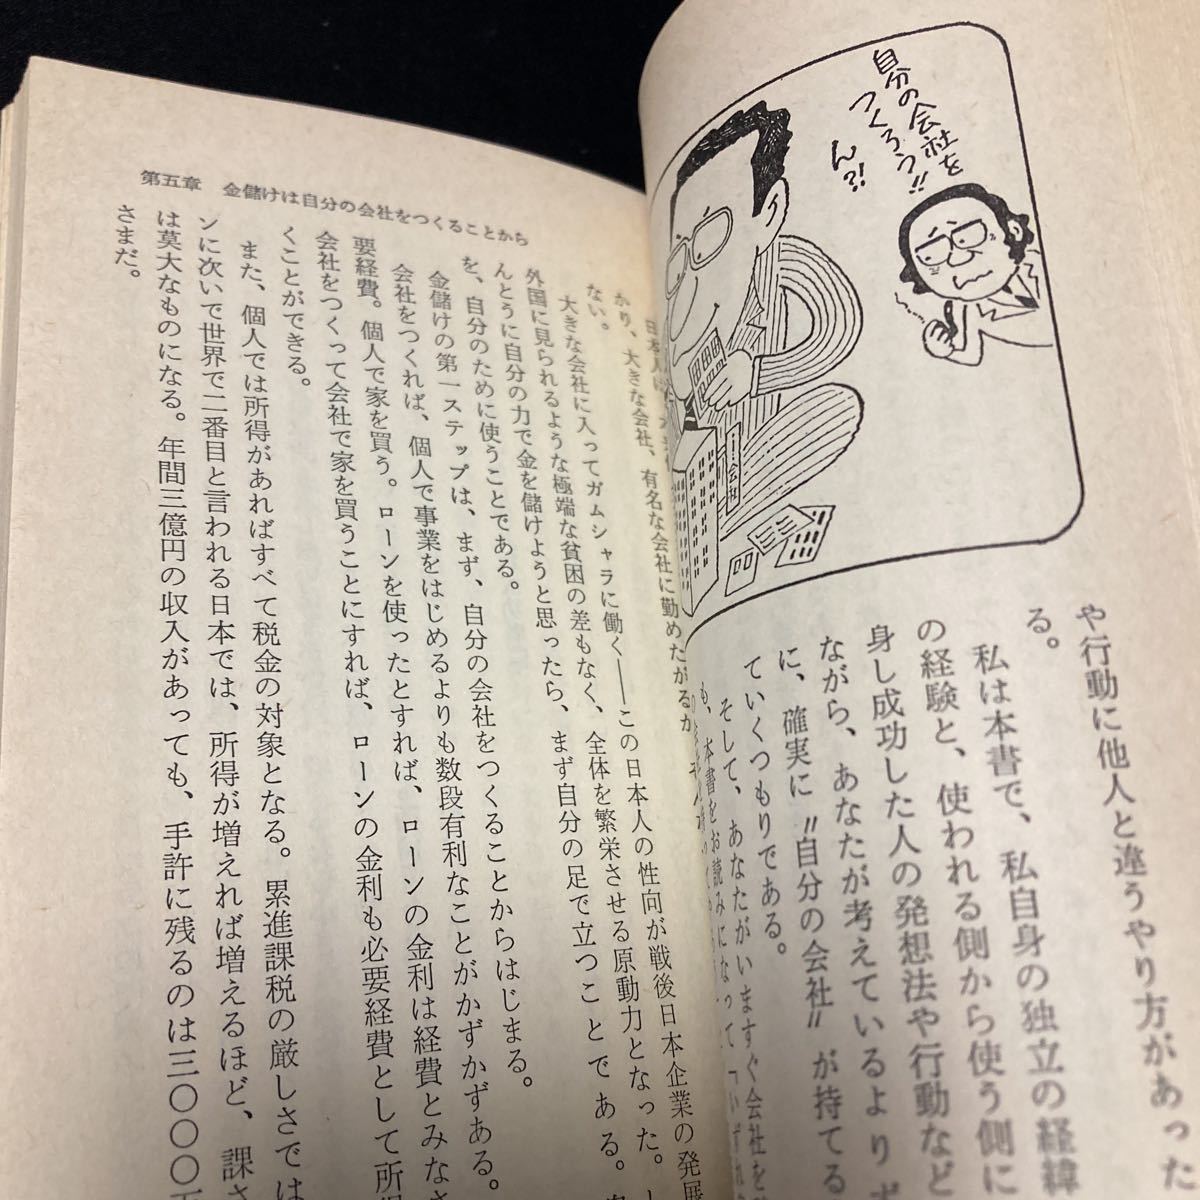 自分の会社を
つくろう!!
ん?!
会社
や行動に他人と違うやり方があった
る。
私は本書で、私自身の独立の経緯
の経験と、使われる側から使う側に
身し成功した人の発想法や行動など
ながら、あなたが考えているよりず
に、確実に〝自分の会社〟が持てる
ていくつもりである。
そして、あなたがいますぐ会社を
も、本書をお読みになって
第五章　金儲けは自分の会社をつくることから
かり、大きな会社、有名な会社に勤めたがるか
ない。
大きな会社に入ってガムシャラに働く――この日本人の性向が戦後日本企業の発展
外国に見られるような極端な貧困の差もなく、全体を繁栄させる原動力となった。
んとうに自分の力で金を儲けようと思ったら、まず自分の足で立つことである。
を、自分のために使うことである。
金儲けの第一ステップは、まず、自分の会社をつくることからはじまる。
会社をつくれば、個人で事業をはじめるよりも数段有利なことがかずかずある。
要経費。個人で家を買う。ローンを使ったとすれば、ローンの金利は経費とみなさ
会社をつくって会社で家を買うことにすれば、ローンの金利も必要経費として所
くことができる。
また、個人では所得があればすべて税金の対象となる。累進課税の厳しさでは
ンに次いで世界で二番目と言われる日本では、所得が増えれば増えるほど、課さ
は莫大なものになる。年間三億円の収入があっても、手許に残るのは三〇〇〇万
さまだ。